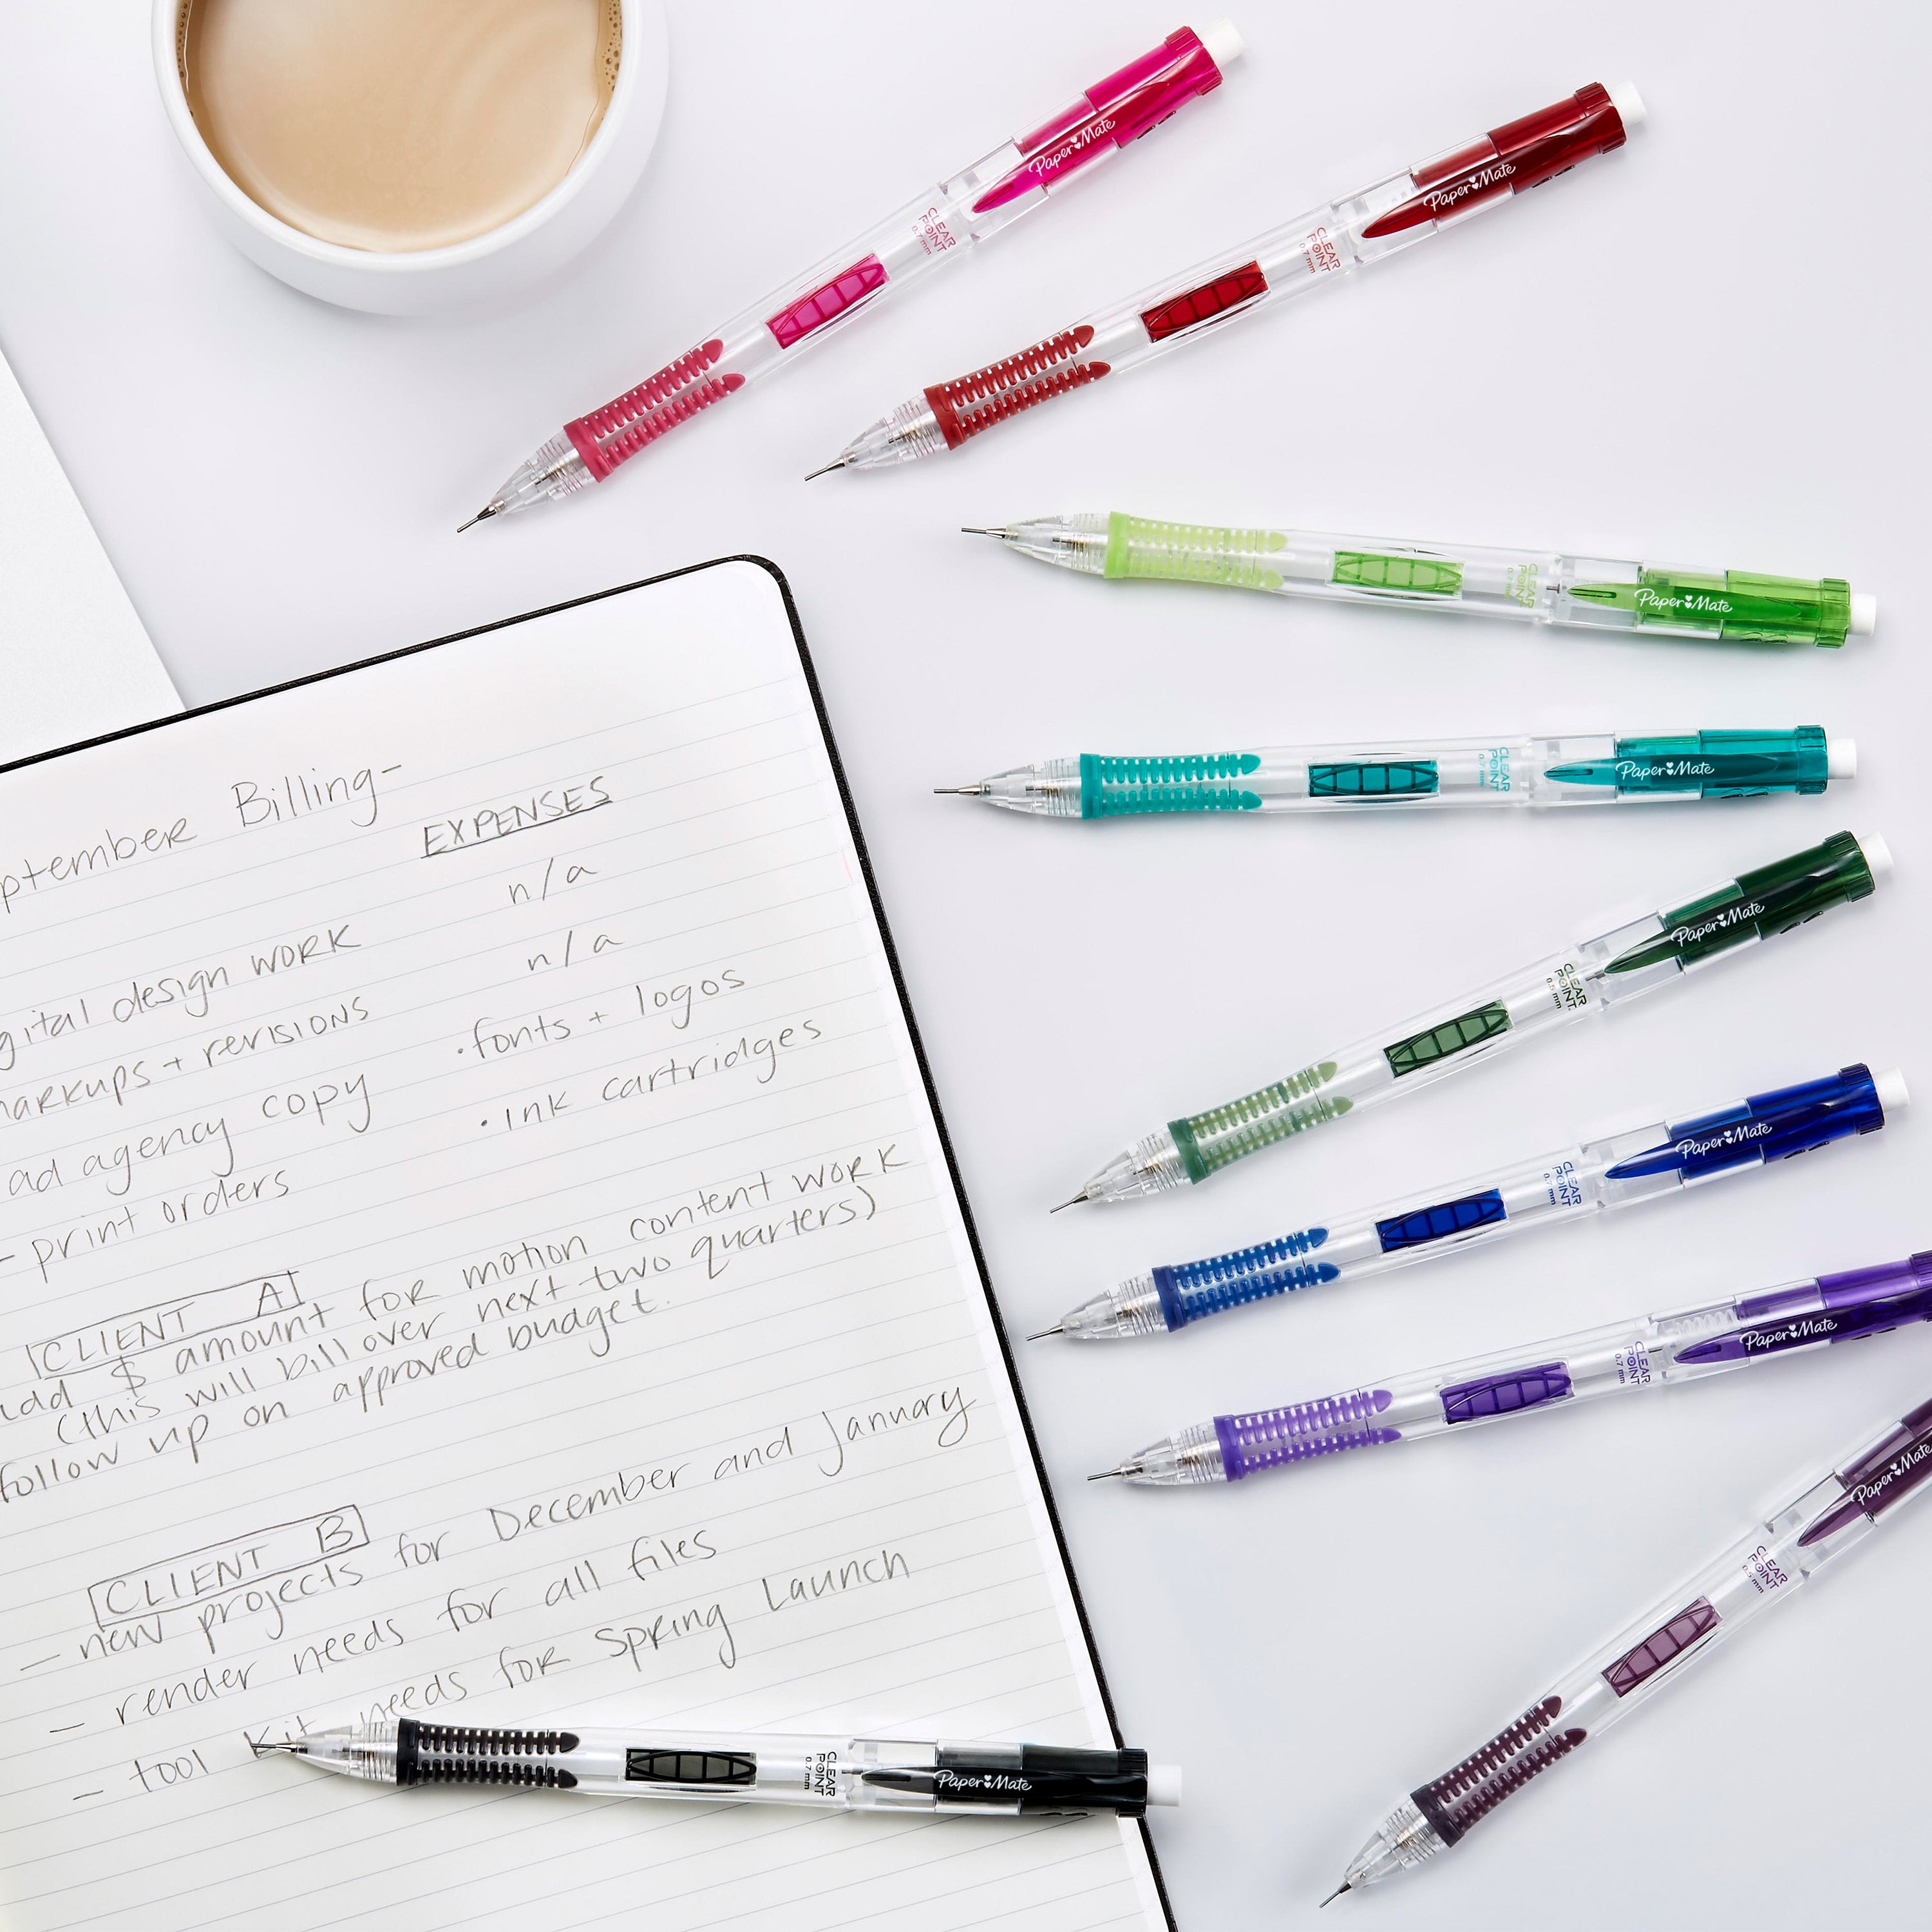 Paper Mate
CLEAR
POINT
0.7 mm
Paper Mate
CLEAR
POINT
0.7 mm
Paper Mate
CLEAR
POINT
Paper Mate
CLEAR
POINT
0.7 mm
Paper Mate
CLEAR
POINT
0.5 mm
Paper Mate
CLEAR
POINT
0.7 mm
Paper Mate
CLEAR
POINT
0.7 mm
Paper Mate
CLEAR
POINT
0.5 mm
ptember Billing-
EXPENSES
n/a
gital design work
n/a
markups + revisions
.fonts + logos
ad agency copy
.ink cartridges
- print orders
CLIENT A
add $ amount for motion content work
(this will bill over next two quarters)
follow up on approved budget.
CLIENT B
- new projects for December and January
- render needs for all files
- tool kit needs for Spring Launch
Paper Mate
CLEAR
POINT
0.7 mm